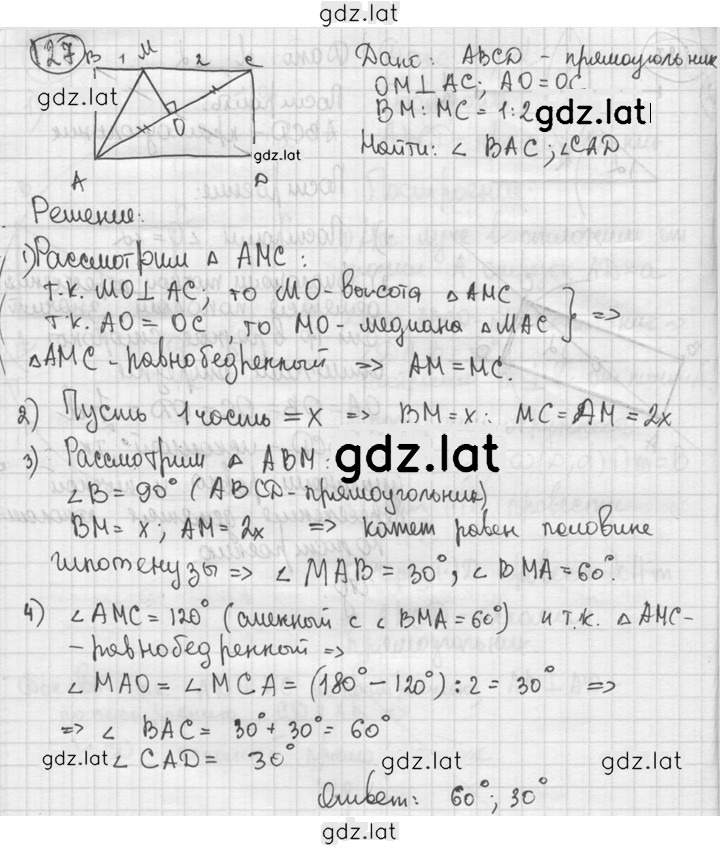 gdz.lat
127 B 1 M 2 C
O
A D
gdz.lat
gdz.lat
Дано: ABCD - прямоугольник
OM⊥AC; AO=OC
BM:MC=1:2 gdz.lat
Найти: ∠BAC; ∠CAD
Решение:
1) Рассмотрим △AMC:
т.к. MO⊥AC, то MO-высота △AMC
т.к. AO=OC, то MO-медиана △MAC } =>
△AMC-равнобедренный => AM=MC.
2) Пусть 1 часть =x => BM=x; MC=AM=2x
3) Рассмотрим △ABM: gdz.lat
∠B=90° (ABCD-прямоугольник)
BM=x; AM=2x => катет равен половине
гипотенузы => ∠MAB=30°, ∠BMA=60°.
4) ∠AMC=120° (смежный с ∠BMA=60°) и т.к. △AMC-
-равнобедренный =>
∠MAO=∠MCA=(180°-120°):2=30° =>
=> ∠BAC=30°+30°=60°
gdz.lat ∠CAD=30° gdz.lat gdz.lat
Ответ: 60°; 30°
gdz.lat